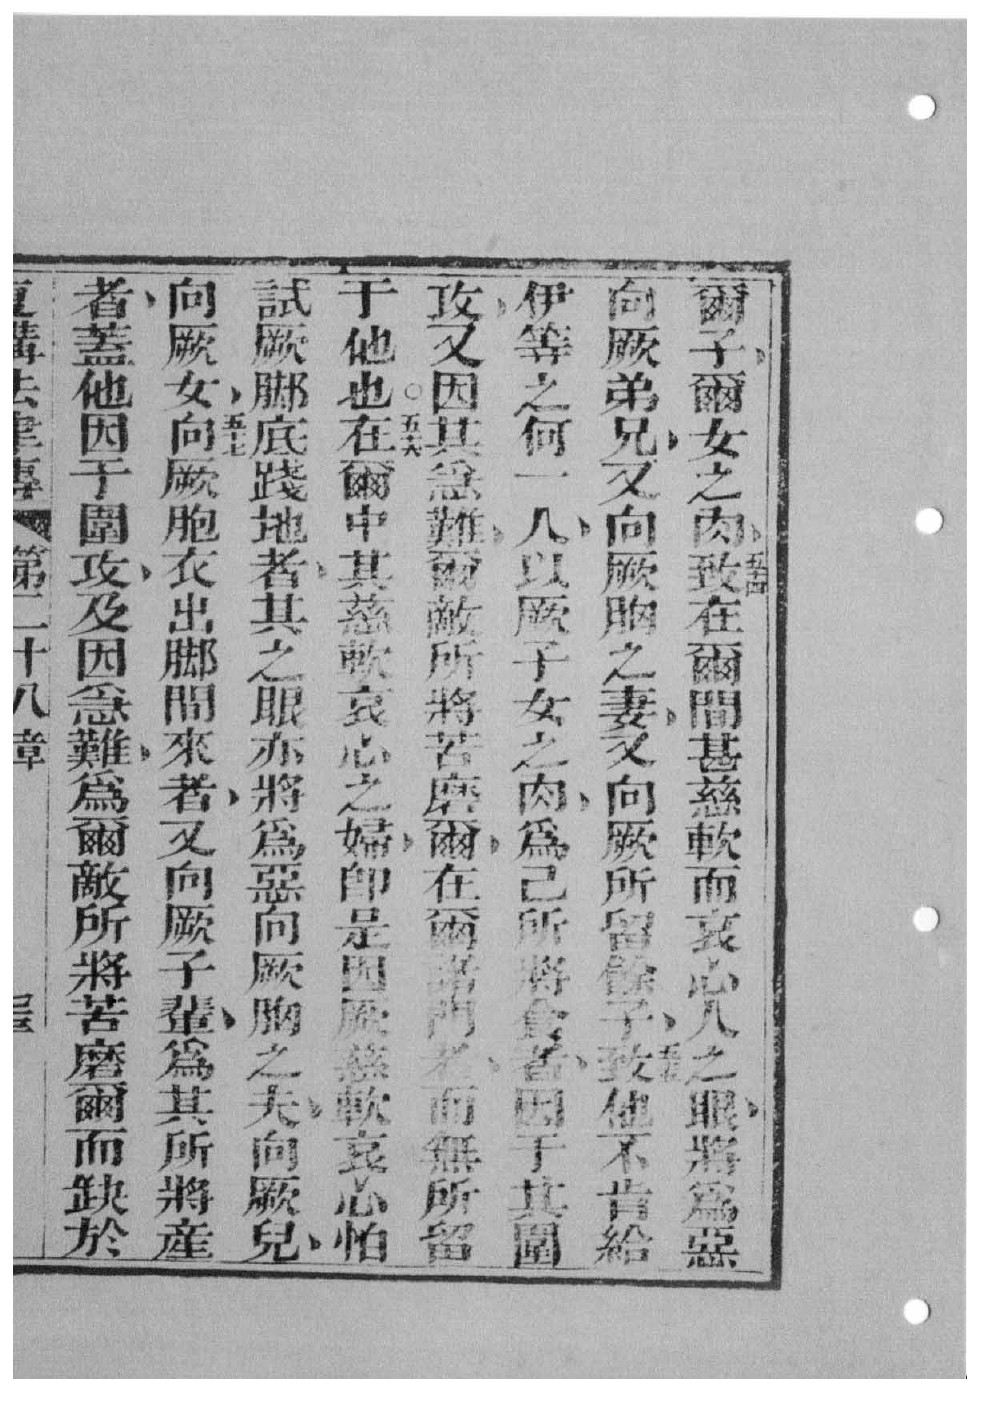 爾子、爾女之肉、五十四致在爾間甚慈軟而哀心人之眼、將爲惡
向厥弟兄、又向厥胸之妻、又向厥所留餘子、五十五致他不肯給
伊等之何一人、以厥子女之肉、爲己所將食者、因于其圍
攻、又因其急難、爾敵所將苦磨爾、在爾諸門者、而無所留
于他也。五十六在爾中其慈軟哀心之婦、卽是因厥慈軟哀心怕
試厥脚底踐地者、其之眼亦將爲惡向厥胸之夫、向厥兒、
向厥女、五十七向厥胞衣出脚間來者、又向厥子輩、爲其所將產
者、蓋他因于圍攻、及因急難、爲爾敵所將苦磨爾而缺於
復講法律傳 第二十八章